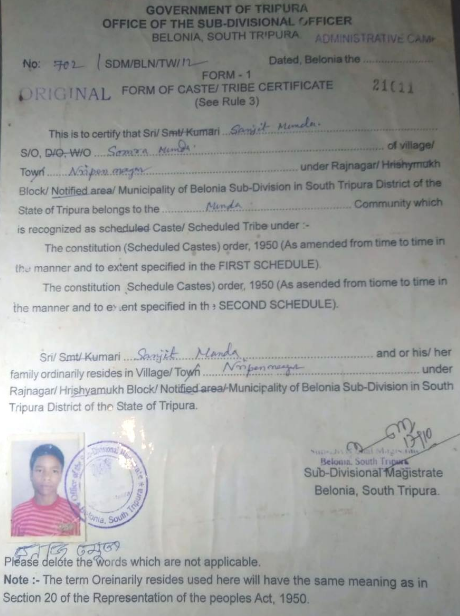 GOVERNMENT OF TRIPURA
OFFICE OF THE SUB-DIVISIONAL OFFICER
BELONIA, SOUTH TRIPURA.
ADMINISTRATIVE CAMP
No: 702 / SDM/BLN/TW/12 Dated, Belonia the
FORM - 1
ORIGINAL FORM OF CASTE/ TRIBE CERTIFICATE
(See Rule 3)
This is to certify that Sri/ Smt/ Kumari Sanjit Munda.
S/O, D/O, W/O Somra Munda. of village/
Town Nripannagar under Rajnagar/ Hrishymukh
Block/ Notified area/ Municipality of Belonia Sub-Division in South Tripura District of the
State of Tripura belongs to the Munda Community which
is recognized as scheduled Caste/ Scheduled Tribe under :-
The constitution (Scheduled Castes) order, 1950 (As amended from time to time in
the manner and to extent specified in the FIRST SCHEDULE).
The constitution (Schedule Castes) order, 1950 (As asended from tiome to time in
the manner and to extent specified in the SECOND SCHEDULE).
Sri/ Smt/ Kumari Sanjit Munda and or his/ her
family ordinarily resides in Village/ Town Nripannagar under
Rajnagar/ Hrishyamukh Block/ Notified area/ Municipality of Belonia Sub-Division in South
Tripura District of the State of Tripura.
Belonia, South Tripura
Sub-Divisional Magistrate
Belonia, South Tripura.
Office of the Sub-Divisional Magistrate
Belonia, South Tripura
Please delote the words which are not applicable.
Note :- The term Oreinarily resides used here will have the same meaning as in
Section 20 of the Representation of the peoples Act, 1950.